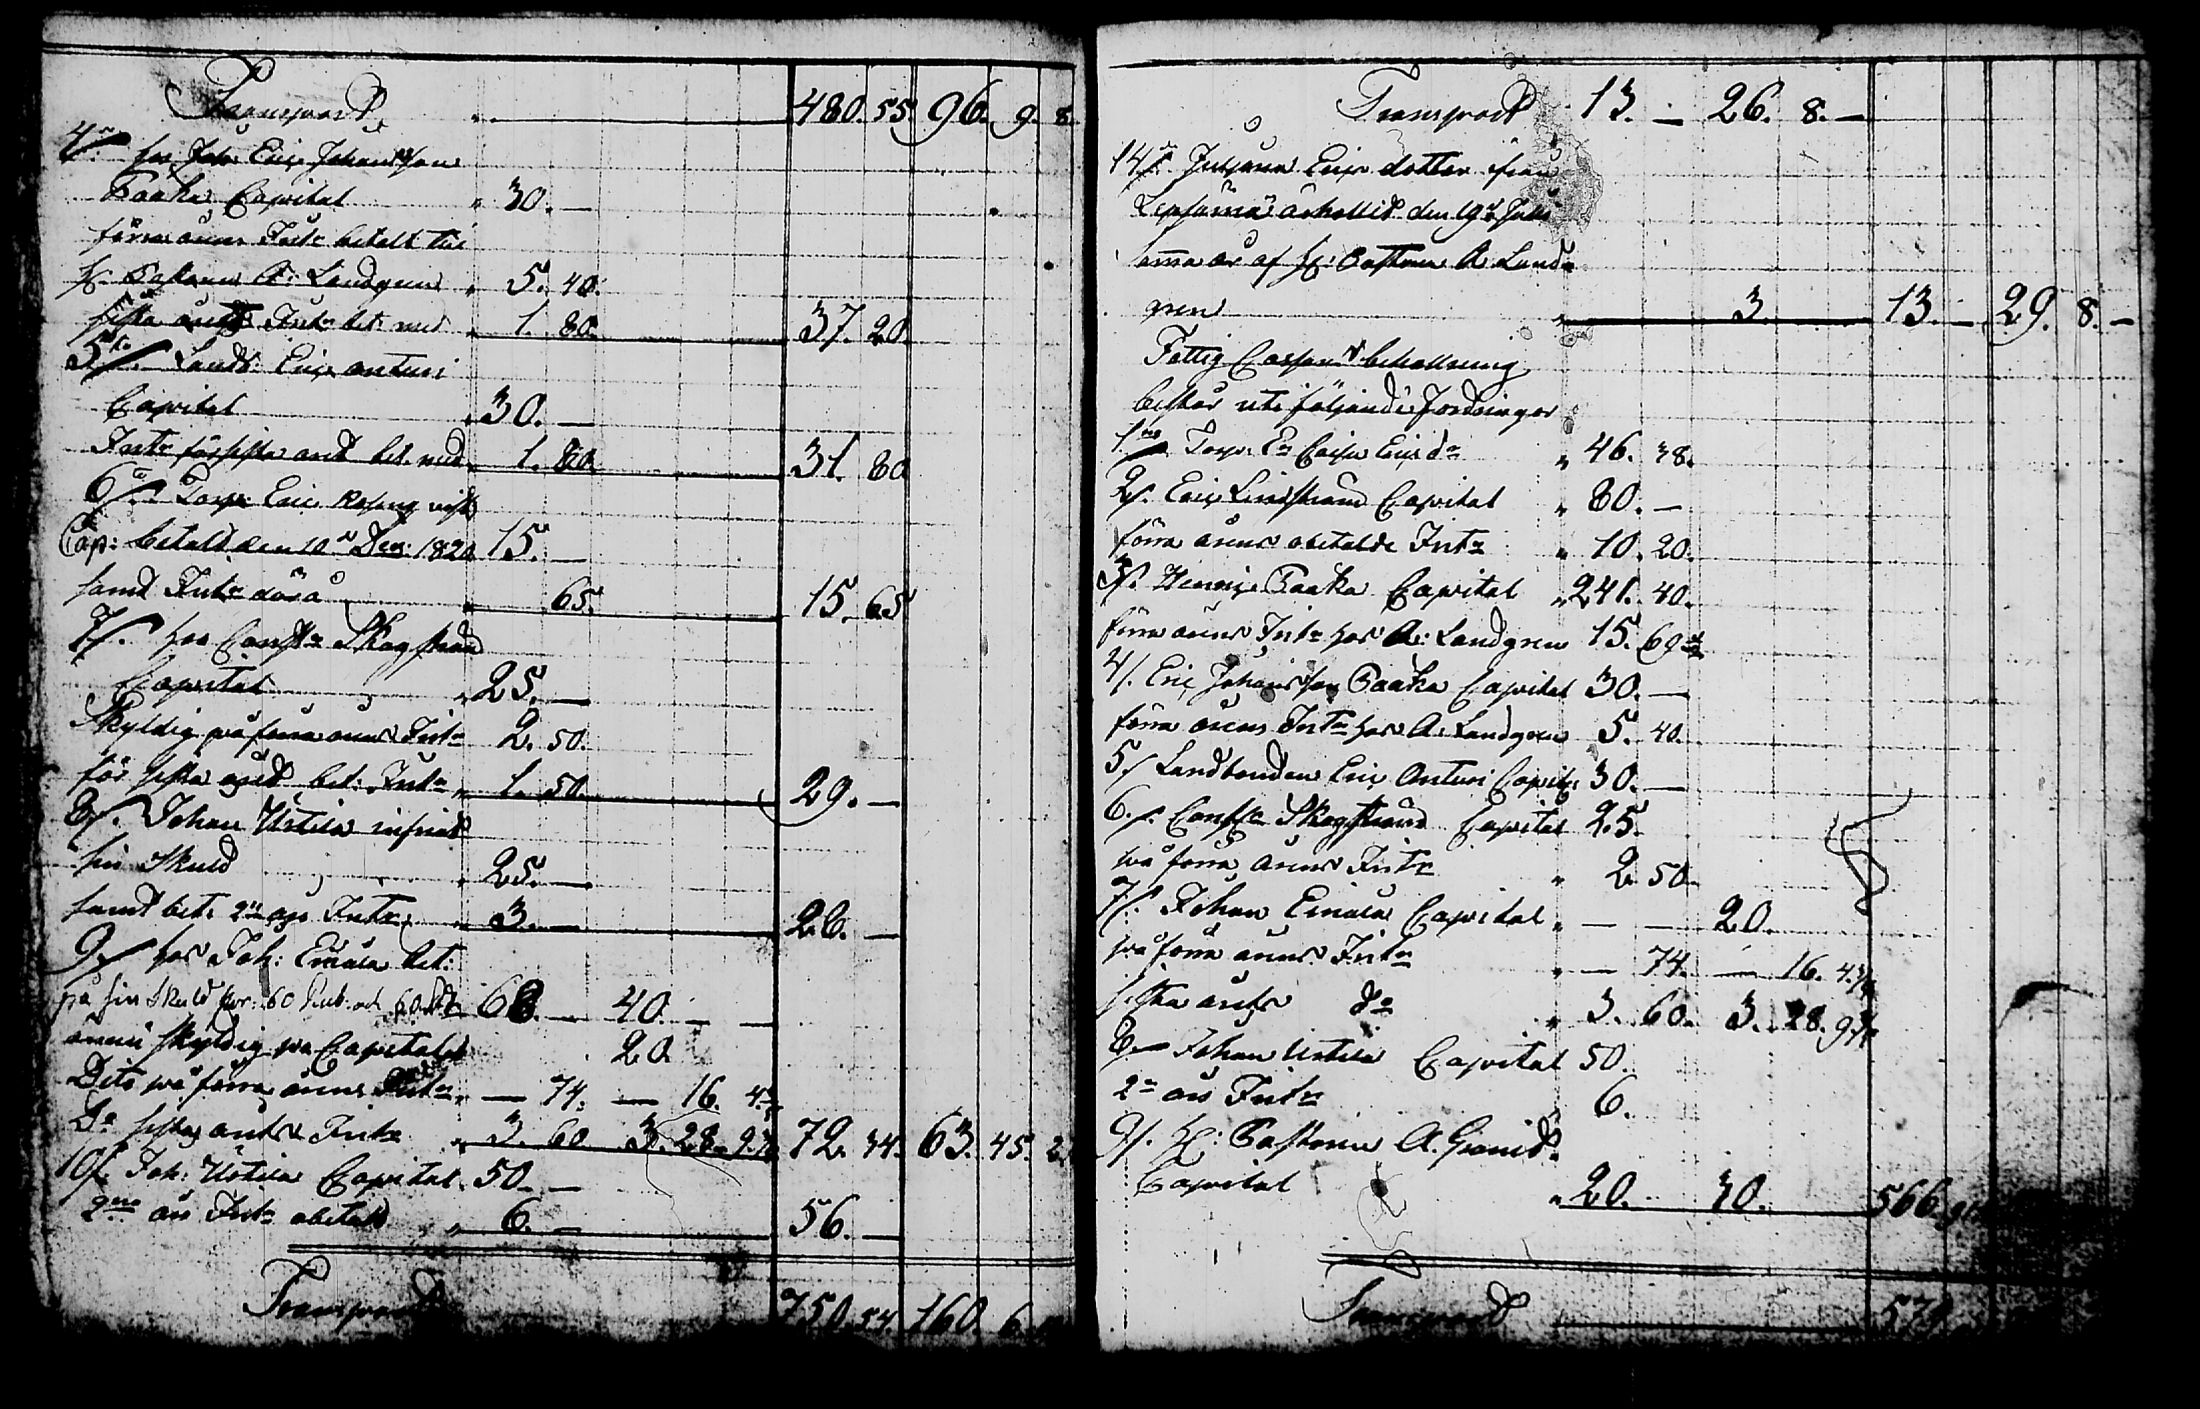 Transport 480. 55. 96. 9. 8.
4/. hos Eric Johansson
Paaka Capital " 30. —
förra årens Intr: betalt till
H. Pastorn A: Landgren " 5. 40.
sista årets Intr: bet: med " 1. 80. 37. 20.
5/. Landb: Eric Anturi
Capital " 30. —
Intr: för sista året bet: med 1. 80. 31. 80
6/. Torp: Eric
Cap: betald den 10 Dec: 1820 15. —
samt Intr: därå " 65. 15. 65
7/. hos Skogstrand
Capital " 25. —
Skyldig på förra årens Intr: 2. 50.
för sista året bet: Intr: " 1. 50. 29. —
8/. Johan Ustila
sin Skuld " 25. —
samt bet: 2 års Intr: " 3. — 28. —
9/. hos Joh: Einala bet:
på sin Skuld 60 Rub: och 60 — 40. — —
ännu skyldig på Capitalet 20
Dito på förra årens Intr: " — 74. — 16. 4.
Do sista årets Intr: " 3. 60 3. 28. 9. 72. 34. 63. 45. 2.
10/. Joh: Ustila Capital 50. —
2 års Intr: obetalt " 6. — 56. —
Transport 750. 54. 160. 6
Transport 13. — 26. 8. —
14/. Ericsdotter från
den 19 Julii
samma år af H: Pastorn A. Land-
gren " 3. 13. — 29. 8. —
Fattig Cassans behållning
består uti följande fordringar
1/. Ericsdr " 46. 38.
2/. Eric Lindstrand Capital " 80. —
förra årens obetalde Intr: " 10. 20.
3/. Henric Paaka Capital " 241. 40.
förra årens Intr: hos A: Landgren 15. 69
4/. Eric Johansson Paaka Capital 30. —
förra årens Intr: hos A. Landgren 5. 40.
5/. Landbonden Eric Anturi Capit: 30. —
6/. Skogstrand Capital 25.
på förra årens Intr: " 2. 50.
7/. Johan Einala Capital " — — 20.
på förra årens Intr: " — 74. — 16. 4.
sista årets do " 3. 60. 3. 28. 9
8/. Johan Ustila Capital 50.
2 års Intr: 6.
9/. H: Pastorn A.
Capital " 20. 40. 566.
Transport